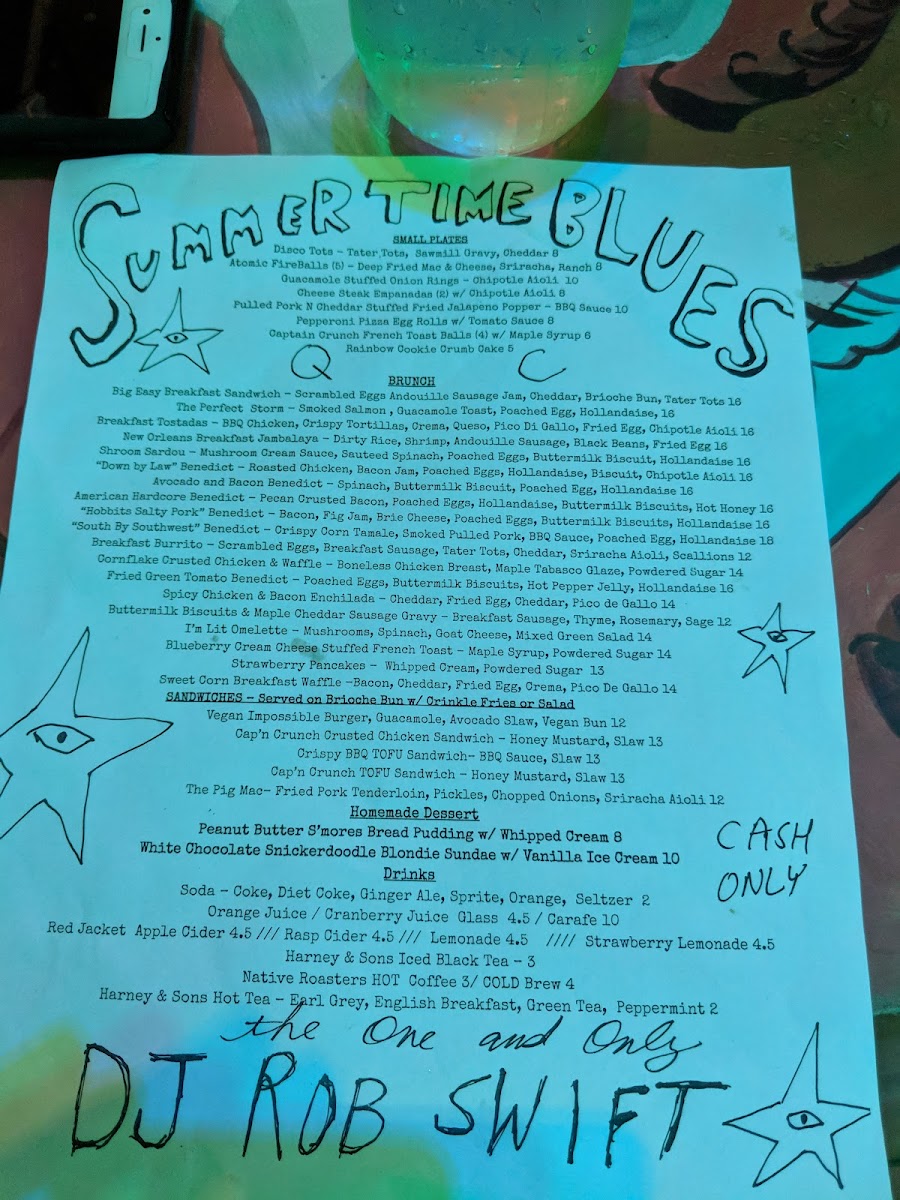 SUMMER TIME BLUES
SMALL PLATES
Disco Tots – Tater Tots, Sawmill Gravy, Cheddar 8
Atomic FireBalls (5) – Deep Fried Mac & Cheese, Sriracha, Ranch 8
Guacamole Stuffed Onion Rings – Chipotle Aioli 10
Cheese Steak Empanadas (2) w/ Chipotle Aioli 8
Pulled Pork N Cheddar Stuffed Fried Jalapeno Popper – BBQ Sauce 10
Pepperoni Pizza Egg Rolls w/ Tomato Sauce 8
Captain Crunch French Toast Balls (4) w/ Maple Syrup 6
Rainbow Cookie Crumb Cake 5
Q C
BRUNCH
Big Easy Breakfast Sandwich – Scrambled Eggs Andouille Sausage Jam, Cheddar, Brioche Bun, Tater Tots 16
The Perfect Storm – Smoked Salmon , Guacamole Toast, Poached Egg, Hollandaise, 16
Breakfast Tostadas – BBQ Chicken, Crispy Tortillas, Crema, Queso, Pico Di Gallo, Fried Egg, Chipotle Aioli 16
New Orleans Breakfast Jambalaya – Dirty Rice, Shrimp, Andouille Sausage, Black Beans, Fried Egg 16
Shroom Sardou – Mushroom Cream Sauce, Sauteed Spinach, Poached Eggs, Buttermilk Biscuit, Hollandaise 16
"Down by Law" Benedict – Roasted Chicken, Bacon Jam, Poached Eggs, Hollandaise, Biscuit, Chipotle Aioli 16
Avocado and Bacon Benedict – Spinach, Buttermilk Biscuit, Poached Egg, Hollandaise 16
American Hardcore Benedict – Pecan Crusted Bacon, Poached Eggs, Hollandaise, Buttermilk Biscuits, Hot Honey 16
"Hobbits Salty Pork" Benedict – Bacon, Fig Jam, Brie Cheese, Poached Eggs, Buttermilk Biscuits, Hollandaise 16
"South By Southwest" Benedict – Crispy Corn Tamale, Smoked Pulled Pork, BBQ Sauce, Poached Egg, Hollandaise 18
Breakfast Burrito – Scrambled Eggs, Breakfast Sausage, Tater Tots, Cheddar, Sriracha Aioli, Scallions 12
Cornflake Crusted Chicken & Waffle – Boneless Chicken Breast, Maple Tabasco Glaze, Powdered Sugar 14
Fried Green Tomato Benedict – Poached Eggs, Buttermilk Biscuits, Hot Pepper Jelly, Hollandaise 16
Spicy Chicken & Bacon Enchilada – Cheddar, Fried Egg, Cheddar, Pico de Gallo 14
Buttermilk Biscuits & Maple Cheddar Sausage Gravy – Breakfast Sausage, Thyme, Rosemary, Sage 12
I'm Lit Omelette – Mushrooms, Spinach, Goat Cheese, Mixed Green Salad 14
Blueberry Cream Cheese Stuffed French Toast – Maple Syrup, Powdered Sugar 14
Strawberry Pancakes – Whipped Cream, Powdered Sugar 13
Sweet Corn Breakfast Waffle –Bacon, Cheddar, Fried Egg, Crema, Pico De Gallo 14
SANDWICHES – Served on Brioche Bun w/ Crinkle Fries or Salad
Vegan Impossible Burger, Guacamole, Avocado Slaw, Vegan Bun 12
Cap'n Crunch Crusted Chicken Sandwich – Honey Mustard, Slaw 13
Crispy BBQ TOFU Sandwich– BBQ Sauce, Slaw 13
Cap'n Crunch TOFU Sandwich – Honey Mustard, Slaw 13
The Pig Mac– Fried Pork Tenderloin, Pickles, Chopped Onions, Sriracha Aioli 12
Homemade Dessert
Peanut Butter S'mores Bread Pudding w/ Whipped Cream 8
White Chocolate Snickerdoodle Blondie Sundae w/ Vanilla Ice Cream 10
CASH
ONLY
Drinks
Soda – Coke, Diet Coke, Ginger Ale, Sprite, Orange, Seltzer 2
Orange Juice / Cranberry Juice Glass 4.5 / Carafe 10
Red Jacket Apple Cider 4.5 /// Rasp Cider 4.5 /// Lemonade 4.5 //// Strawberry Lemonade 4.5
Harney & Sons Iced Black Tea – 3
Native Roasters HOT Coffee 3/ COLD Brew 4
Harney & Sons Hot Tea – Earl Grey, English Breakfast, Green Tea, Peppermint 2
the One and Only
DJ ROB SWIFT